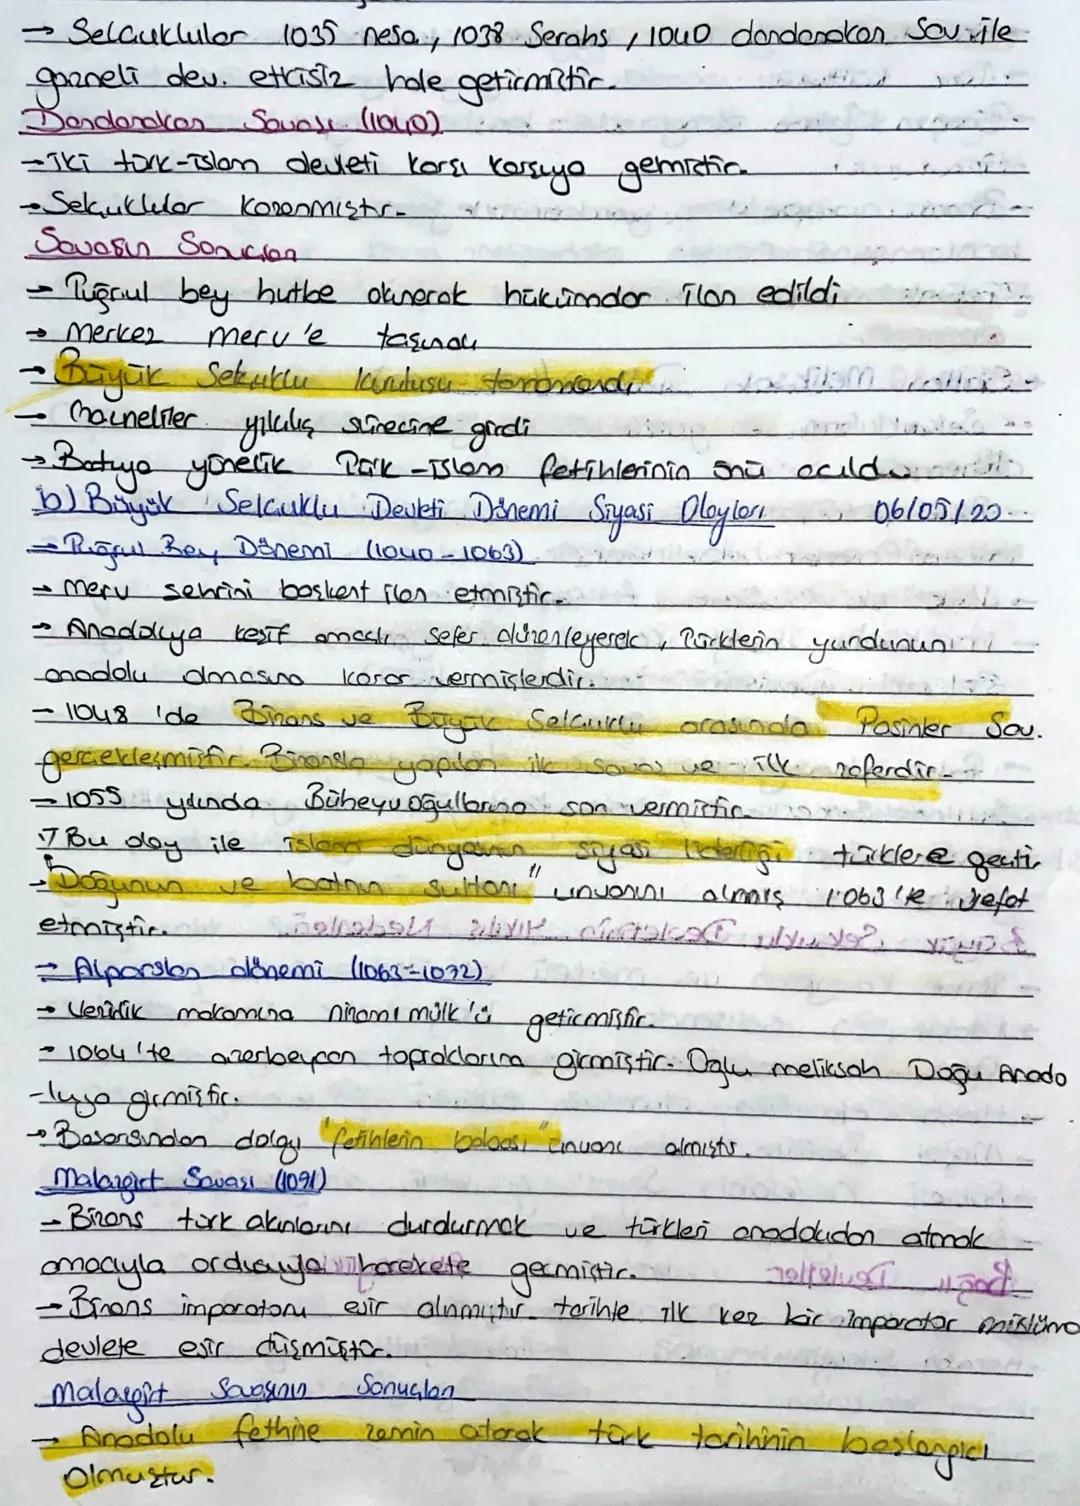 → Selçuklular 1035 nesa, 1038 Serahs, 1040 dandanakan Sav. ile
gazneli dev. etkisiz hale getirmiştir.
Dandanakan Savaşı (1040)
→ iki türk-islam devleti karşı karşıya gelmiştir.
→ Selçuklular kazanmıştır.
Savaşın Sonuçları
→ Tuğrul bey hutbe okunarak hükümdar ilan edildi
→ Merkez merv'e taşındı
→ Büyük Selçuklu kuruluşu tamamlandı
→ Gazneliler yıkılış sürecine girdi
→ Batıya yönelik Türk-islam fetihlerinin önü açıldı
b) Büyük Selçuklu Devleti Dönemi Siyasi Olayları 06/05/20
→ Tuğrul Bey Dönemi (1040-1063)
→ merv şehrini başkent ilan etmiştir.
→ Anadoluya keşif amaçlı sefer düzenleyerek, Türklerin yurdunun
anadolu olmasına karar vermişlerdir.
→ 1048 'de Bizans ve Büyük Selçuklu arasında Pasinler Sav.
gerçekleşmiştir. Bizansla yapılan ilk savaş ve ilk zaferdir.
→ 1055 yılında Büheyvoğullarına son vermiştir.
→ Bu olay ile islam dünyasının siyasi liderliği türklere geçti
→ "Doğunun ve batının sultanı" ünvanını almış 1063'te vefat
etmiştir.
→ Alparslan dönemi (1063-1072)
→ Vezirlik makamına nizamı mülk'ü getirmiştir.
→ 1064'te azerbeycan topraklarına girmiştir. Oğlu melikşah Doğu Anado
-luya girmiştir.
→ Başarısından dolayı "fetihlerin babası" ünvanı almıştır.
Malazgirt Savaşı (1091)
→ Bizans türk akınlarını durdurmak ve türkleri anadoludan atmak
amacıyla ordusuyla harekete geçmiştir.
→ Bizans imparatoru esir alınmıştır. tarihte ilk kez bir imparator müslüma
devlete esir düşmüştür.
Malazgirt Savaşının Sonuçları
→ Anadolu fethine zemin atarak türk tarihinin başlangıcı
olmuştur.